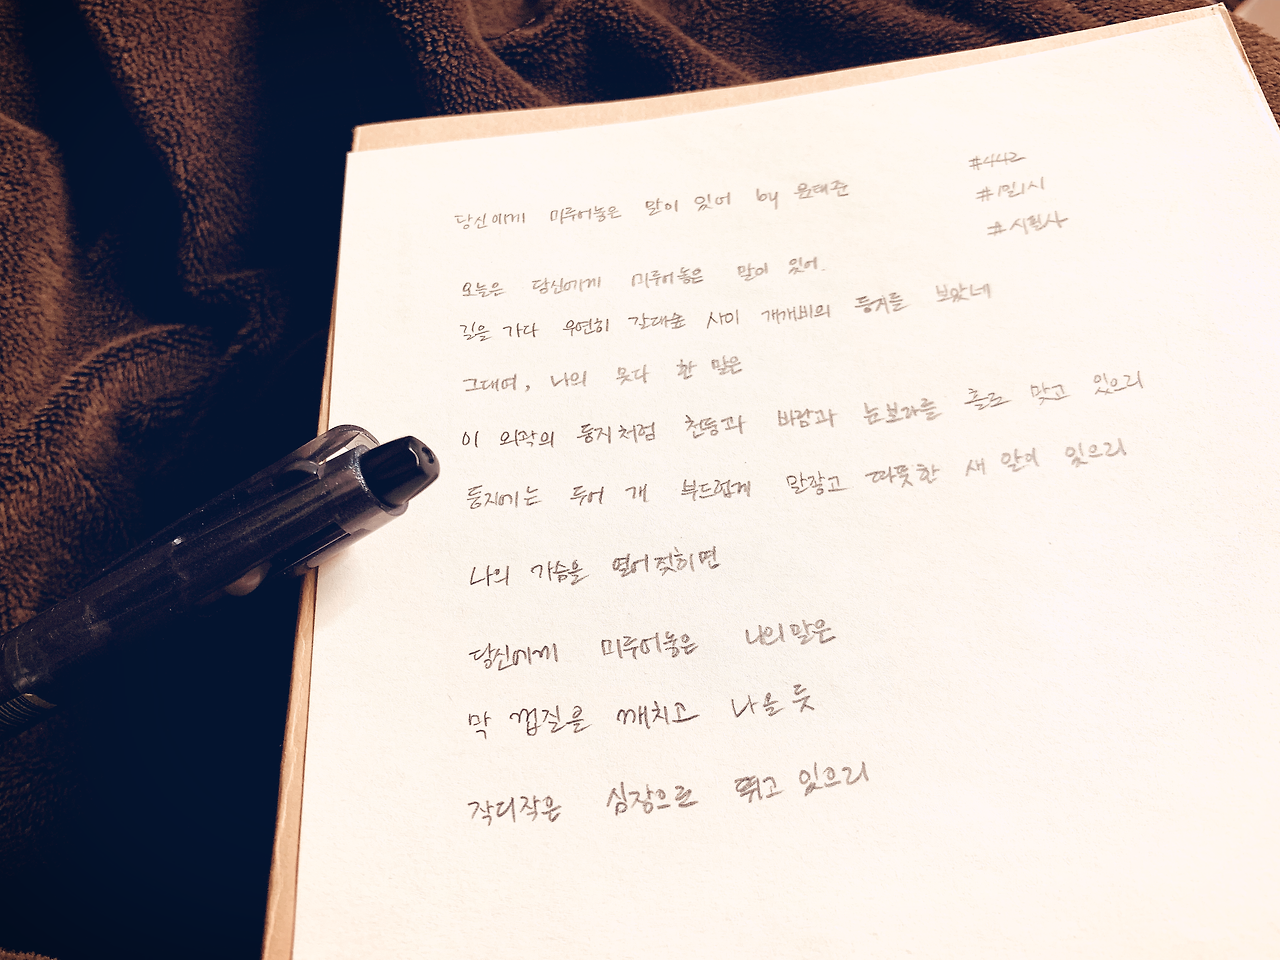 당신에게 미루어놓은 말이 있어 by 윤태준
#442
#1일1시
#시필사
오늘은 당신에게 미루어놓은 말이 있어.
길을 가다 우연히 갈대숲 사이 개개비의 둥지를 보았네
그대여, 나의 못다 한 말은
이 외곽의 둥지처럼 천둥과 바람과 눈보라를 홀로 맞고 있으리
둥지에는 두어 개 부드럽게 말갛고 따뜻한 새 알이 있으리
나의 가슴을 열어젖히면
당신에게 미루어놓은 나의 말은
막 껍질을 깨치고 나올 듯
작디작은 심장으로 뛰고 있으리